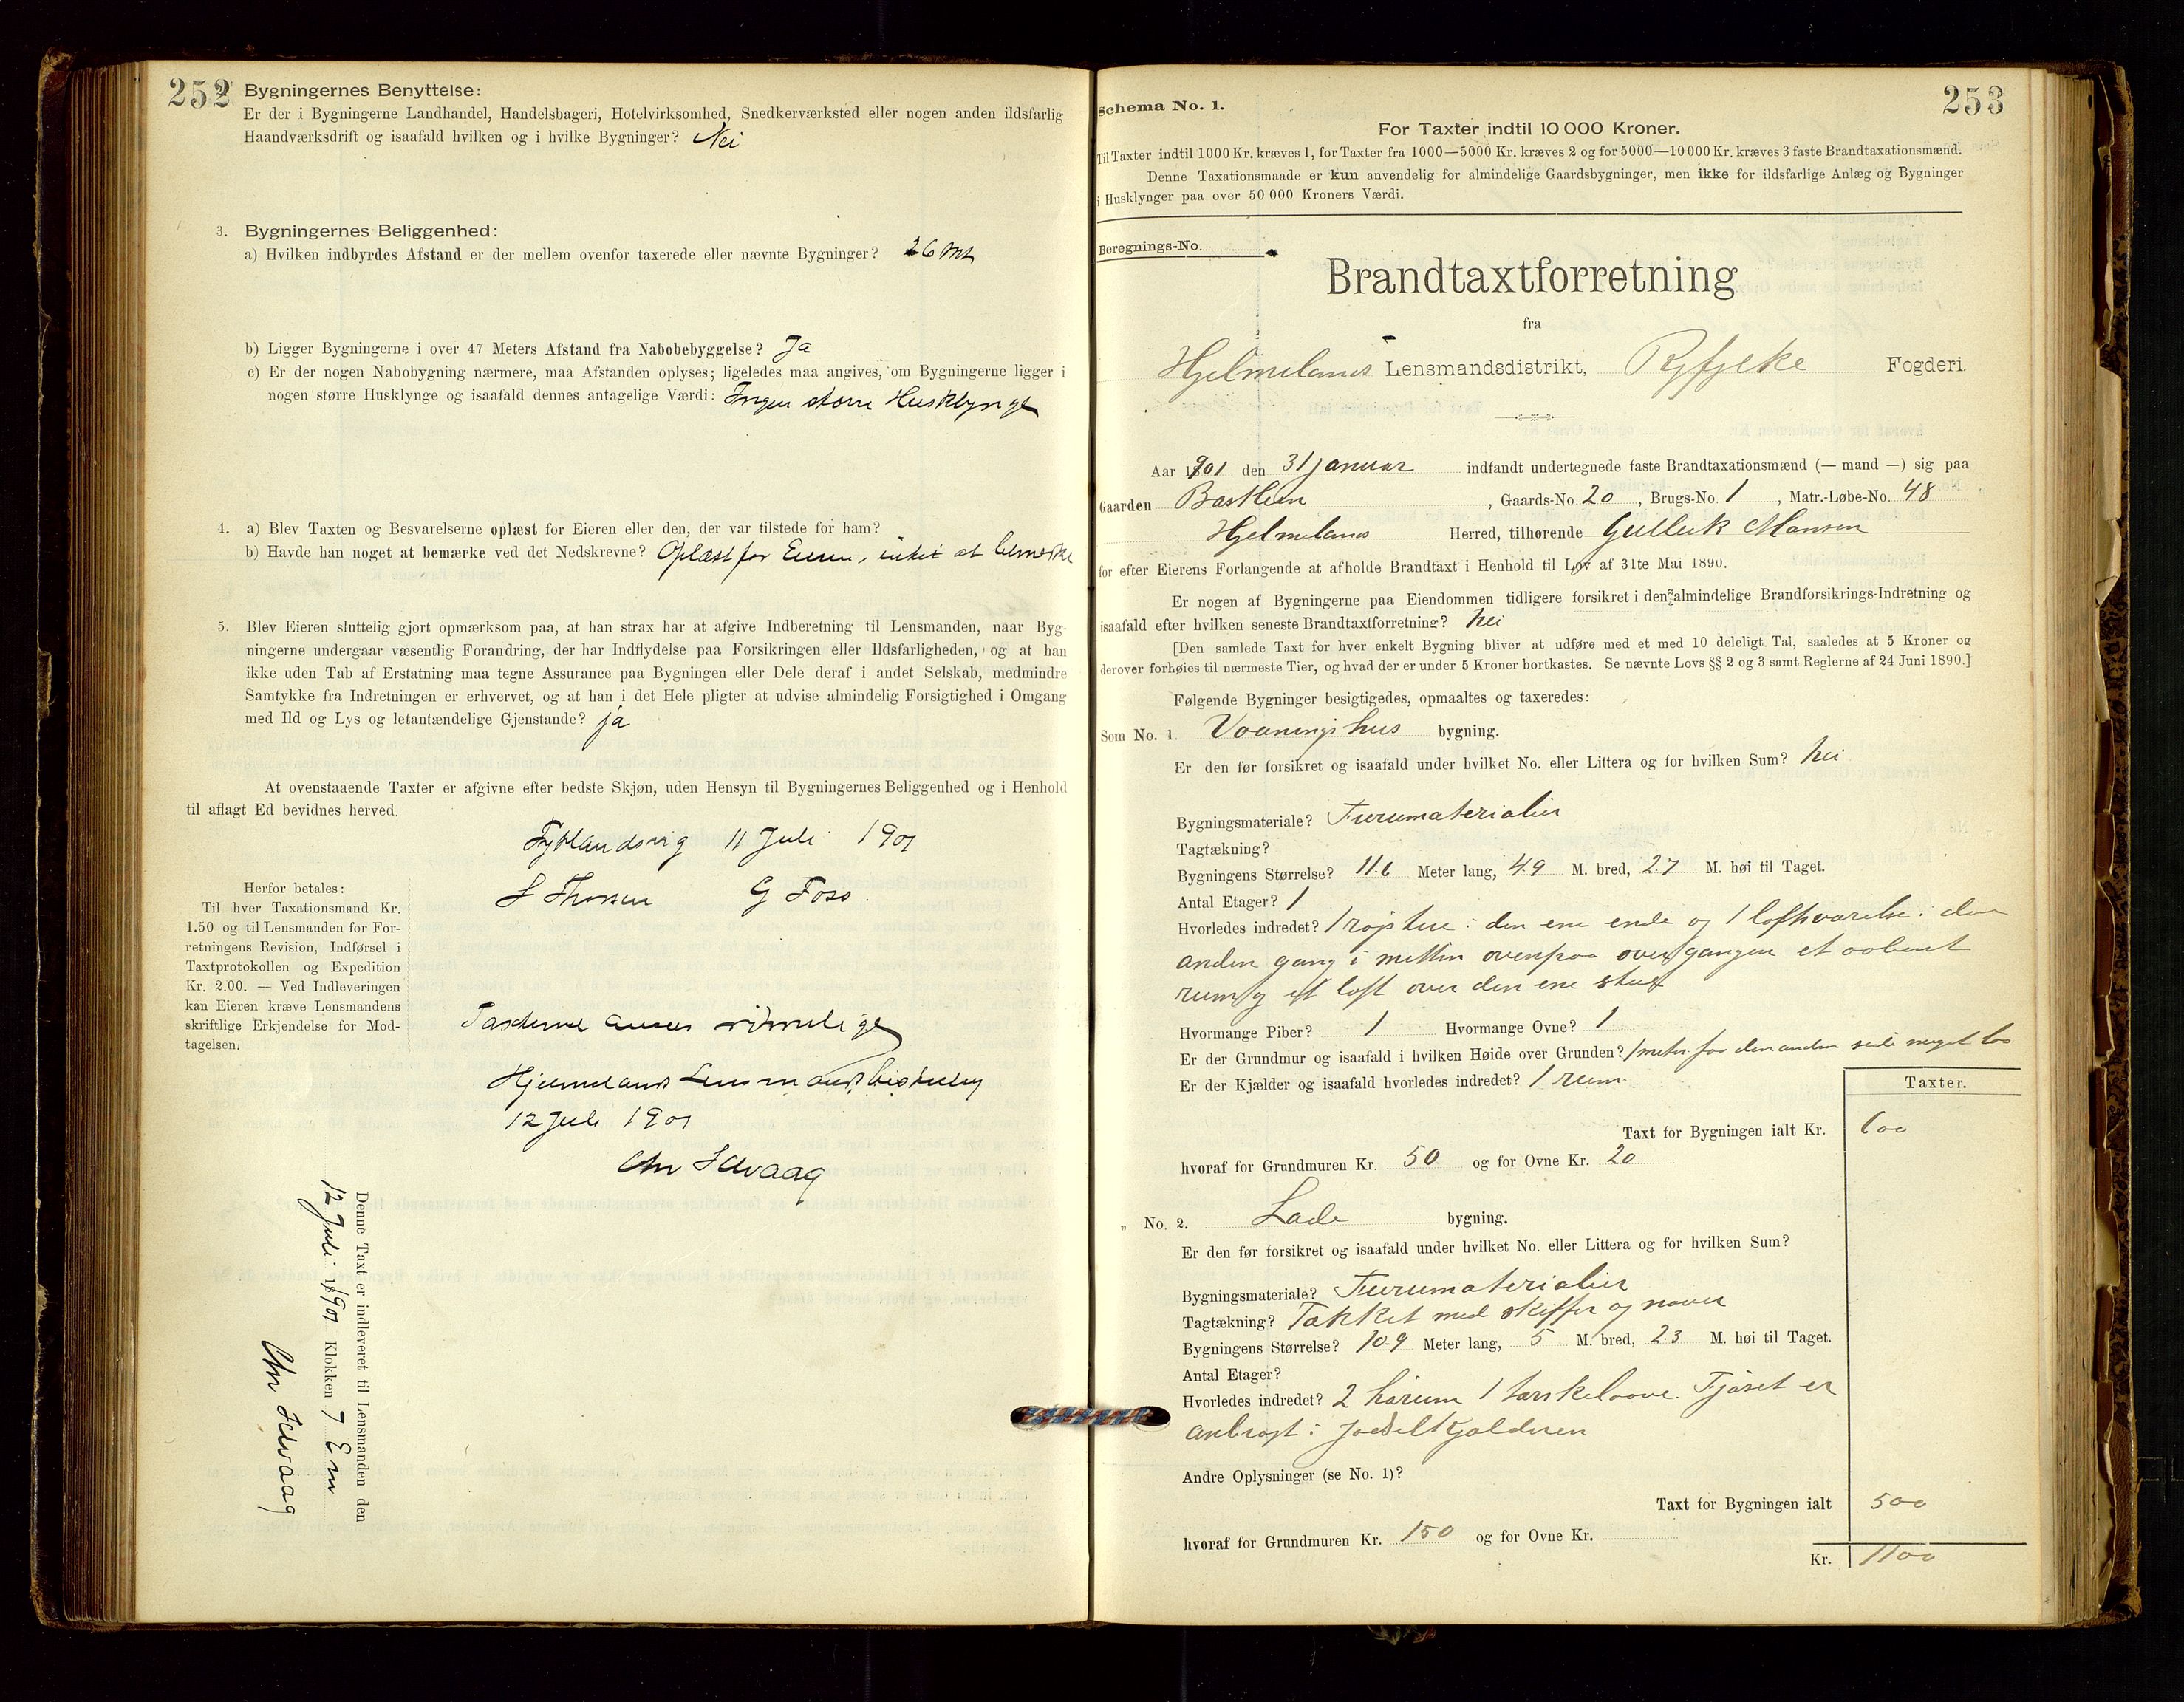 252
Bygningernes Benyttelse:
Er der i Bygningerne Landhandel, Handelsbageri, Hotelvirksomhed, Snedkerværksted eller nogen anden ildsfarlig
Haandværksdrift og isaafald hvilken og i hvilke Bygninger? Nei
3. Bygningernes Beliggenhed:
a) Hvilken indbyrdes Afstand er der mellem ovenfor taxerede eller nævnte Bygninger? 26 Mt
b) Ligger Bygningerne i over 47 Meters Afstand fra Nabobebyggelse? Ja
c) Er der nogen Nabobygning nærmere, maa Afstanden oplyses; ligeledes maa angives, om Bygningerne ligger i
nogen større Husklynge og isaafald dennes antagelige Værdi: Ingen større Husklynge
4. a) Blev Taxten og Besvarelserne oplæst for Eieren eller den, der var tilstede for ham?
b) Havde han noget at bemærke ved det Nedskrevne? Oplæst for Eieren, intet at bemærke
5. Blev Eieren sluttelig gjort opmærksom paa, at han strax har at afgive Indberetning til Lensmanden, naar Byg-
ningerne undergaar væsentlig Forandring, der har Indflydelse paa Forsikringen eller Ildsfarligheden, og at han
ikke uden Tab af Erstatning maa tegne Assurance paa Bygningen eller Dele deraf i andet Selskab, medmindre
Samtykke fra Indretningen er erhvervet, og at han i det Hele pligter at udvise almindelig Forsigtighed i Omgang
med Ild og Lys og letantændelige Gjenstande? ja
At ovenstaaende Taxter er afgivne efter bedste Skjøn, uden Hensyn til Bygningernes Beliggenhed og i Henhold
til aflagt Ed bevidnes herved.
11 Juli 1901
Thorsen G Foss.
Herfor betales:
Til hver Taxationsmand Kr.
1.50 og til Lensmanden for For-
retningens Revision, Indførsel i
Taxtprotokollen og Expedition
Kr. 2.00. — Ved Indleveringen
kan Eieren kræve Lensmandens
skriftlige Erkjendelse for Mod-
tagelsen.
Taxterne ansees rimelige
Hjelmelands Lensmandsbestilling
12 Juli 1901
Chr
Denne Taxt er indleveret til Lensmanden den
12 Juli 1901 Klokken 7 Em
Chr
253
Schema No. 1.
For Taxter indtil 10 000 Kroner.
Til Taxter indtil 1000 Kr. kræves 1, for Taxter fra 1000—5000 Kr. kræves 2 og for 5000—10 000 Kr. kræves 3 faste Brandtaxationsmænd.
Denne Taxationsmaade er kun anvendelig for almindelige Gaardsbygninger, men ikke for ildsfarlige Anlæg og Bygninger
i Husklynger paa over 50 000 Kroners Værdi.
Beregnings-No.
Brandtaxtforretning
fra
Hjelmelands Lensmandsdistrikt, Ryfylke Fogderi.
Aar 1901 den 31 januar indfandt undertegnede faste Brandtaxationsmænd (— mand —) sig paa
Gaarden , Gaards-No. 20 , Brugs-No. 1 , Matr.-Løbe-No. 48
Hjelmelands Herred, tilhørende Gulleik
for efter Eierens Forlangende at afholde Brandtaxt i Henhold til Lov af 31te Mai 1890.
Er nogen af Bygningerne paa Eiendommen tidligere forsikret i den almindelige Brandforsikrings-Indretning og
isaafald efter hvilken seneste Brandtaxtforretning? nei
[Den samlede Taxt for hver enkelt Bygning bliver at udføre med et med 10 deleligt Tal, saaledes at 5 Kroner og
derover forhøies til nærmeste Tier, og hvad der er under 5 Kroner bortkastes. Se nævnte Lovs §§ 2 og 3 samt Reglerne af 24 Juni 1890.]
Følgende Bygninger besigtigedes, opmaaltes og taxeredes:
Som No. 1. Vaaningshus bygning.
Er den før forsikret og isaafald under hvilket No. eller Littera og for hvilken Sum? nei
Bygningsmateriale? Furumaterialier
Tagtækning?
Bygningens Størrelse? 11.6 Meter lang, 4.9 M. bred, 2.7 M. høi til Taget.
Antal Etager? 1
Hvorledes indredet? 1 røjstue i den ene ende og 1 loftsværelse i den
anden gang i mitten ovenpaa over gangen et aabent
rum og et loft over den ene stue
Hvormange Piber? 1 Hvormange Ovne? 1
Er der Grundmur og isaafald i hvilken Høide over Grunden? 1 meter paa den anden side meget lav
Er der Kjælder og isaafald hvorledes indredet? 1 rum
Taxter.
Taxt for Bygningen ialt Kr. 600
hvoraf for Grundmuren Kr. 50 og for Ovne Kr. 20
„ No. 2. Lade bygning.
Er den før forsikret og isaafald under hvilket No. eller Littera og for hvilken Sum?
Bygningsmateriale? Furumaterialier
Tagtækning? Tækket med skiffer og næver
Bygningens Størrelse? 10.9 Meter lang, 5 M. bred, 2.3 M. høi til Taget.
Antal Etager?
Hvorledes indredet? 2 hørum 1 tærskeloove. Fjøset er
anbragt i
Andre Oplysninger (se No. 1)?
Taxt for Bygningen ialt 500
hvoraf for Grundmuren Kr. 150 og for Ovne Kr.
Kr. 1100